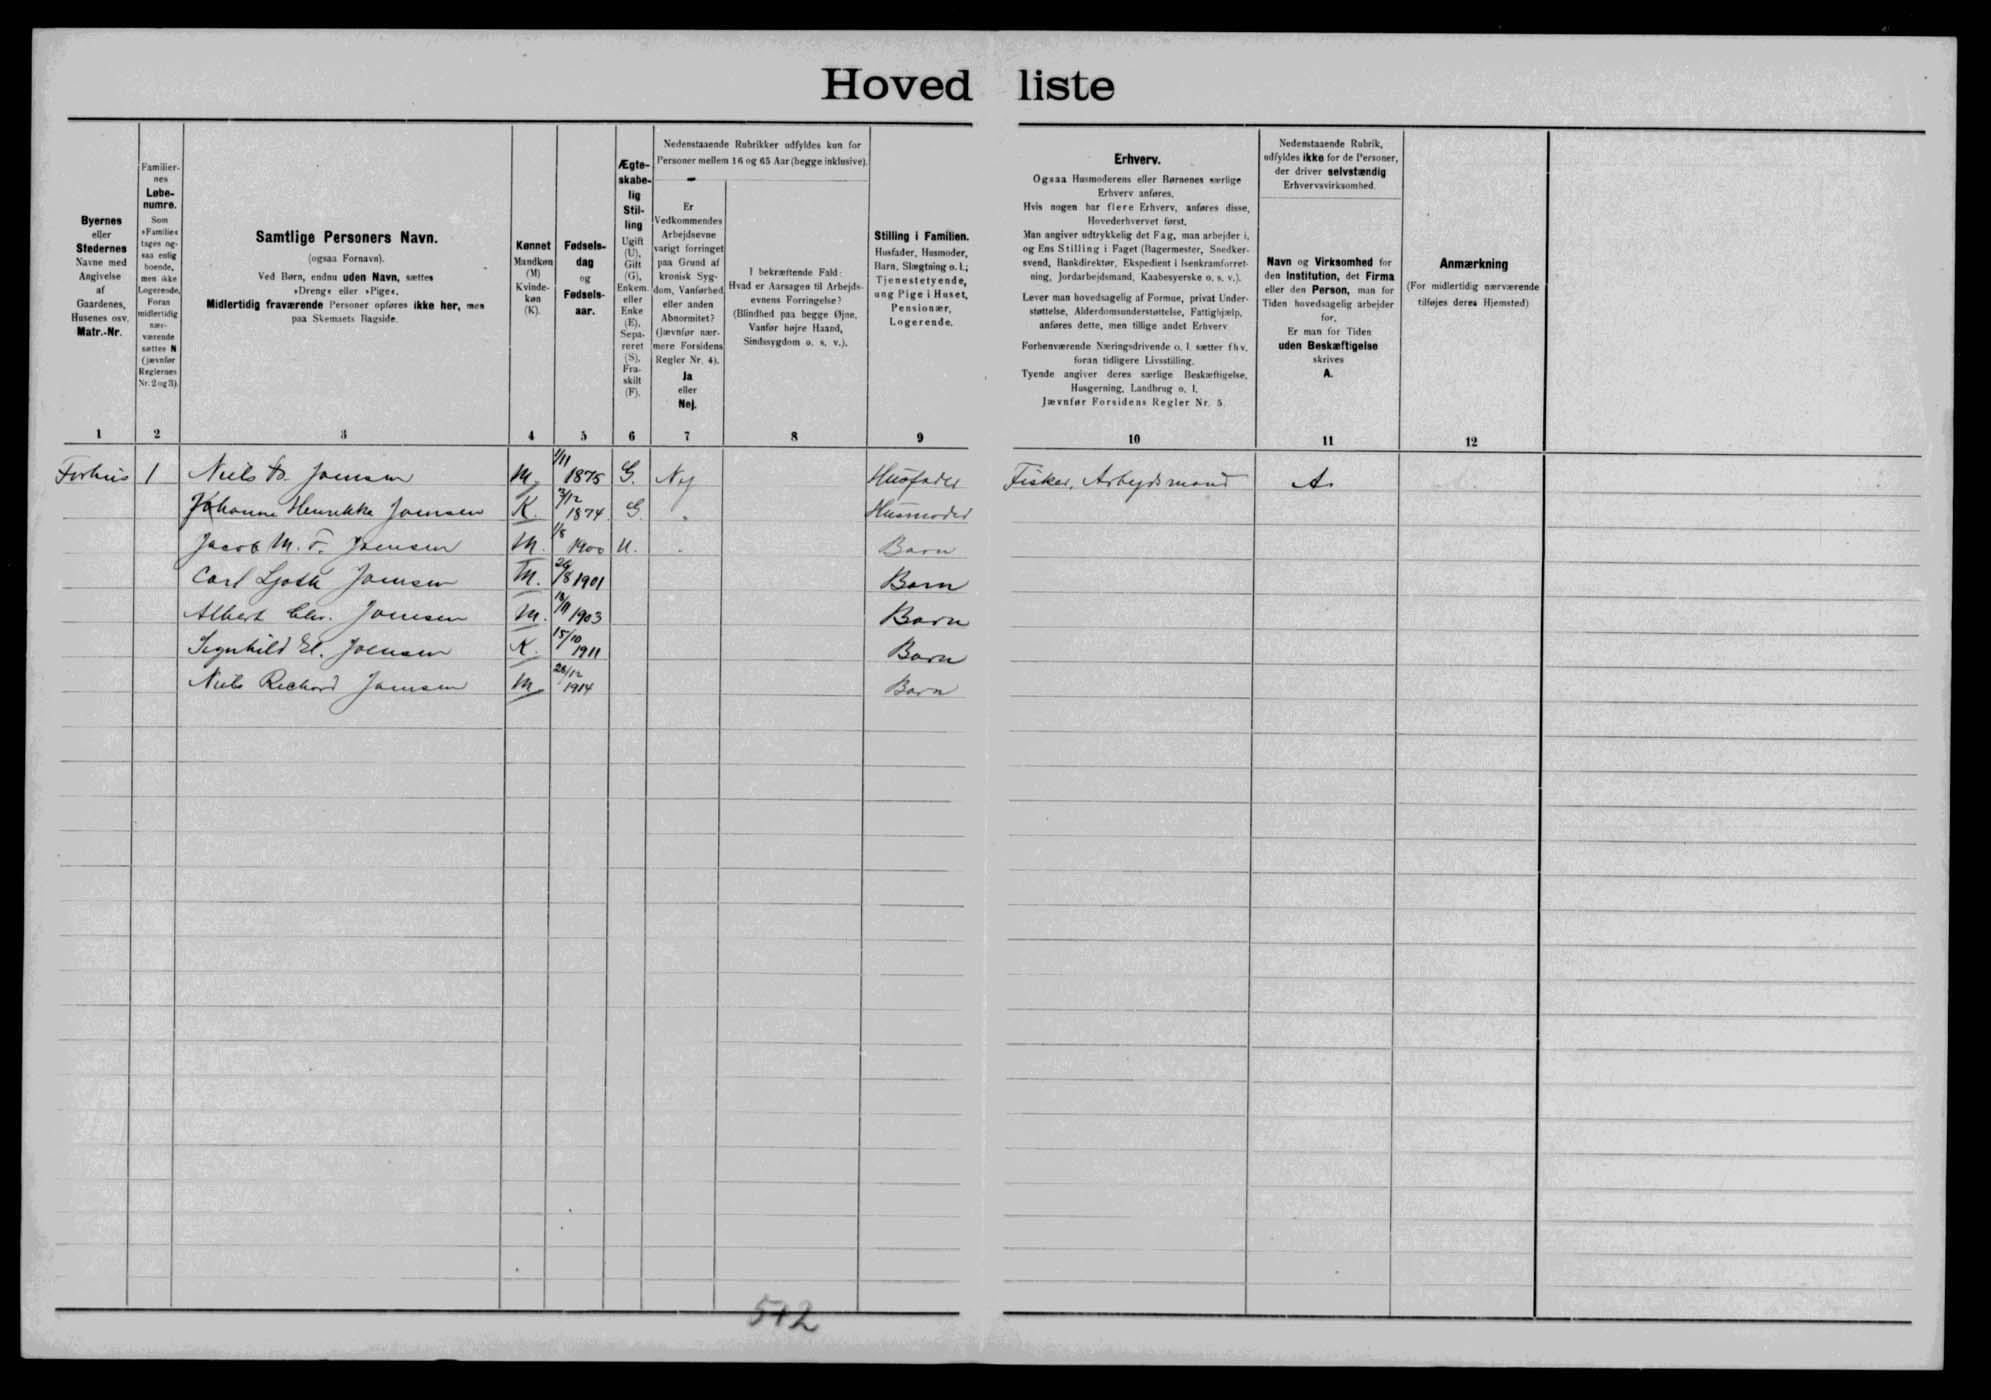 Hovedliste
Byernes
eller
Stedernes
Navne med
Angivelse
af
Gaardenes,
Husenes osv.
Matr.-Nr.
Familier-
nes
Løbe-
numre.
Som
»Familie«
tages og-
saa enlig
boende,
men ikke
Logerende.
Foran
midlertidig
nær-
værende
sættes N
(jævnfør
Reglernes
Nr. 2 og 3).
Samtlige Personers Navn.
(ogsaa Fornavn).
Ved Børn, endnu uden Navn, sættes
»Dreng« eller »Pige«.
Midlertidig fraværende Personer opføres ikke her, men
paa Skemaets Bagside.
Kønnet
Mandkøn
(M)
Kvinde-
køn
(K).
Fødsels-
dag
og
Fødsels-
aar.
Ægte-
skabe-
lig
Stil-
ling
Ugift
(U),
Gift
(G),
Enkem.
eller
Enke
(E),
Sepa-
reret
(S),
Fra-
skilt
(F).
Nedenstaaende Rubrikker udfyldes kun for
Personer mellem 16 og 65 Aar (begge inklusive).
Er
Vedkommendes
Arbejdsevne
varigt forringet
paa Grund af
kronisk Syg-
dom, Vanførhed
eller anden
Abnormitet?
(Jævnfør nær-
mere Forsidens
Regler Nr. 4).
Ja
eller
Nej.
I bekræftende Fald:
Hvad er Aarsagen til Arbejds-
evnens Forringelse?
(Blindhed paa begge Øjne,
Vanfør højre Haand,
Sindssygdom o. s. v.).
Stilling i Familien.
Husfader, Husmoder,
Barn, Slægtning o. l.;
Tjenestetyende,
ung Pige i Huset,
Pensionær,
Logerende.
Erhverv.
Ogsaa Husmoderens eller Børnenes særlige
Erhverv anføres.
Hvis nogen har flere Erhverv, anføres disse,
Hovederhvervet først.
Man angiver udtrykkelig det Fag, man arbejder i,
og Ens Stilling i Faget (Bagermester, Snedker-
svend, Bankdirektør, Ekspedient i Isenkramforret-
ning, Jordarbejdsmand, Kaabesyerske o. s. v.).
Lever man hovedsagelig af Formue, privat Under-
støttelse, Alderdomsunderstøttelse, Fattighjælp,
anføres dette, men tillige andet Erhverv
Forhenværende Næringsdrivende o. l. sætter fhv.
foran tidligere Livsstilling.
Tyende angiver deres særlige Beskæftigelse,
Husgerning, Landbrug o. l.
Jævnfør Forsidens Regler Nr. 5.
Nedenstaaende Rubrik,
udfyldes ikke for de Personer,
der driver selvstændig
Erhvervsvirksomhed.
Navn og Virksomhed for
den Institution, det Firma
eller den Person, man for
Tiden hovedsagelig arbejder
for.
Er man for Tiden
uden Beskæftigelse
skrives
A.
Anmærkning
(For midlertidig nærværende
tilføjes deres Hjemsted)
1 2 3 4 5 6 7 8 9 10 11 12
Forhus 1 Niels Joensen M. 1/11 1875 G. Nej Husfader Fisker, Arbejdsmand A.
Johanne Henrikka Joensen K. 2/12 1874 G. Husmoder
Jacob M. F. Joensen M. 1/8 1900 U. Barn
Carl Joensen M. 26/8 1901 Barn
Albert Chr. Joensen M. 13/11 1903 Barn
Signhild El. Joensen K. 15/10 1911 Barn
Niels Richard Joensen M 28/12 1914 Barn
542